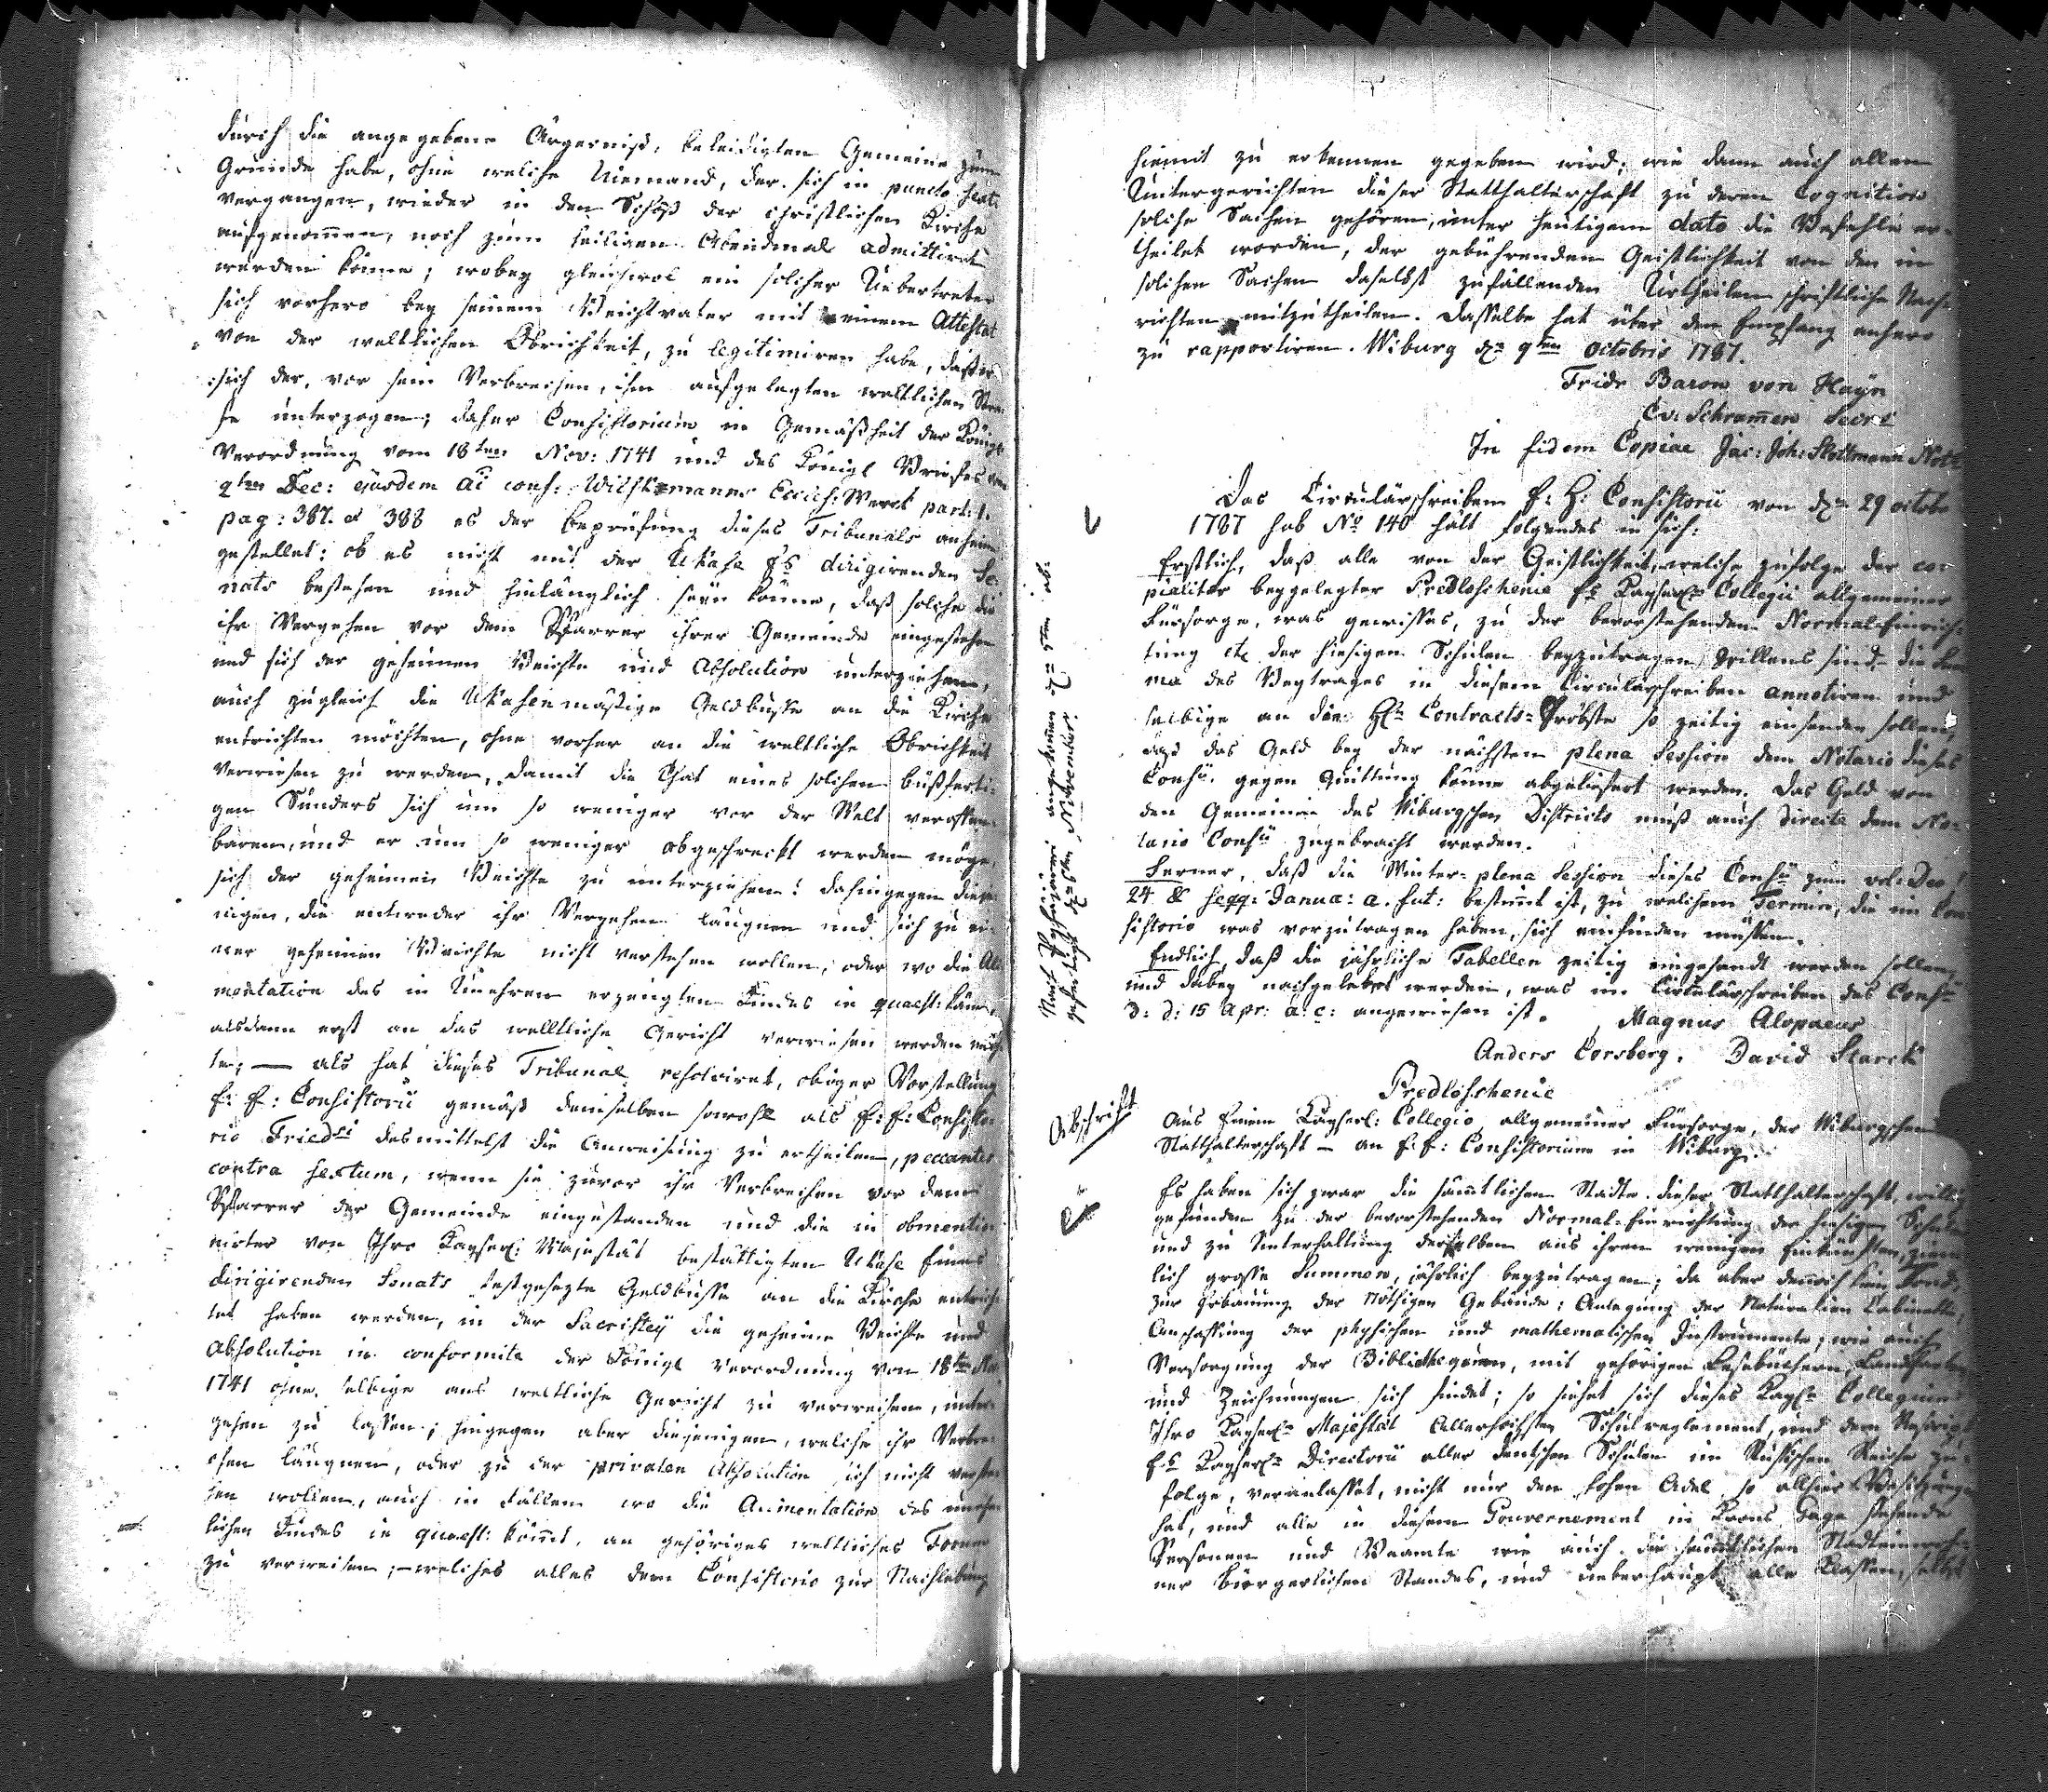 durch die angegebene Ärgerniß, beleidigten Gemeine zum
Grunde habe, ohne welche Niemand, der sich in puncto sexti
vergangen, wieder in den Schoß der christlichen Kirche
aufgenommen, noch zum heiligen Abendmal admittiret
werden könne; wobey gleichwol ein solcher Uebertreter
sich vorhero bey seinem Beichtvater mit einem Attestat
von der weltlichen Obrichkeit, zu legitimiren habe, daß er
sich der, vor sein Verbrechen, ihm aufgelegten weltlichen Stra-
fe unterzogen; daher Consistorium in Gemäßheit der Königl
Verordnung vom 18ten Nov: 1741 und des Königl Briefes vom
9ten Dec: ejusdem ai conf: Wilskmanns Eccles: Werck part: 1.
pag: 387. et 388 es der beprüfung dieses Tribunals anheim
gestellet: ob es nicht mit der Ukase Es dirigirenden Se-
nats bestehen und hinlänglich seyn könne, daß solche die
ihr Vergehen vor dem Pfarrer ihrer Gemeinde eingestehen
und sich der geheimen Beichte und Absolution unterziehen,
auch zugleich die Ukasenmäßige Geldbusse an die Kirche
entrichten möchten, ohne vorher an die weltliche Obrichkeit
verwiesen zu werden, damit die That eines solchen bußferti-
gen Sünders sich um so weniger vor der Welt veroffen-
baren, und er um so weniger abgeschreckt werden möge,
sich der geheimen Beichte zu unterziehen! dahingegen dieje-
nigen, die entweder ihr Vergehen läugnen und sich zu ei-
ner geheimen Beichte nicht verstehen wollen, oder wo die Ali-
mentation des in Unehren erzeugten Kindes in quaest: käme,
alsdann erst an das weltliche Gericht verwiesen werden müs-
ten; — als hat dieses Tribunal resolviret, obiger Vorstellung
E: E: Consistorii gemäß demselben sowohl als E: E: Consisto-
rio Friedri desmittelst die Anweisung zu ertheilen, peccantes
contra sextum, wenn sie zuvor ihr Verbrechen vor dem
Pfarrer der Gemeinde eingestanden und die in obmentio-
nirter von Ihro Kayserl: Majestät bestättigten Ukase Eines
dirigirenden Senats festgesezte Geldbusse an die Kirche entrich-
tet haben werden, in der Sacristey die geheime Beichte und
Absolution in conformite der Königl verordnung von 18ten Nov
1741 ohne selbige ans weltliche Gericht zu verweisen, unter-
gehen zu lassen; hingegen aber diejenigen, welche ihr Verbre-
chen läugnen, oder zu der privaten Absolution sich nicht verste-
hen wollen, auch in Fällen wo die Alimentation des unehe-
lichen Kindes in quaest: kömmt, an gehöriges weltliches Forum
zu verweisen; — welches alles dem Consistorio zur Nachlebung
hiemit zu erkennen gegeben wird; wie dann auch allen
Untergerichten dieser Statthalterschaft zu deren Cognition
solche Sachen gehören, unter heutigem dato die Befehle er-
theilet worden, der gebührenden Geistlichkeit von den in
solchen Sachen daselbst zufällenden Urtheilen schriftliche Nach-
richten mitzutheilen. Dasselbe hat über den Empfang anhero
zu rapportiren. Wiburg d: 9ten Octobris 1787.
Fridr Baron von Hayn
C v: Schrammen Secre
In fidem Copiae Jac: Joh: Slottmann Not:
Das Circulärschreiben E: H: Consistorii von d: 29 octobr
1787 sub No 140 hält folgendes in sich:
Erstlich, daß alle von der Geistlichkeit, welche zufolge der co-
pialiter beygelegter Predloschenie Es Kayserl: Collegii allgemeiner
Fürsorge, was gewisses, zu der bevorstehenden Normal-Einrich-
tung etc der hiesigen Schulen beyzutragen willens sind, die Sum-
ma des Beytrages in diesem Circulärschreiben annotiren und
selbige an die H: Contracts-Pröbste so zeitig einsenden sollen,
daß das Geld bey der nächsten plena Session dem Notario dieses
Consii. gegen Quittung könne abgeliefert werden. Das Geld von
den Gemeinen des Wiburgschen Districts muß auch directe dem No-
tario Consii zugebracht werden.
Ferner, daß die Winter-plena Session dieses Consii zum vol: Deo
24 & seqq: Janua: a. fut: bestimt ist, zu welchem Termin, die im Con-
sistorio was vorzutragen haben, sich einfinden müssen.
Endlich, daß die jährliche Tabellen zeitig eingesandt werden sollen,
und dabey nachgelebet werden, was im Circulärschreiben des Consii
d: d: 15 Apr: a: c: angewiesen ist. Magnus Alopaeus
Anders Corsberg. David Starck
Predloschenie
Abschrift
Aus Einem Kayserl: Collegio allgemeiner Fürsorge, der Wiburgschen
Statthalterschaft — an E: E: Consistorium in Wiburg.
Es haben sich zwar die sämtlichen Städte dieser Statthalterschaft willig
gefunden zu der bevorstehenden Normal-Einrichtung der hiesigen Schulen
und zu Unterhaltung derselben aus ihren wenigen Einkünften, ziem-
lich grosse Summen, jährlich beyzutragen; da aber dennoch kein Fond,
zur Erbauung der nöthigen Gebäude; Anlegung der Naturalien Cabinette,
Anschaffung der physischen und mathematischen Instrumente; wie auch
Versorgung der Bibliothequen, mit gehörigen Lesebüchern, Landkarten
und Zeichnungen sich findet; so siehet sich dieses Kayl: Collegium
Ihro Kayserl: Majestät Allerhöchsten Schulreglement, und dem
Es Kayserl: Directorii aller deutschen Schulen im Russischen Reiche zu-
folge, veranlasset, nicht nur den hohen Adel, so allhier Besitzungen
hat, und alle in diesem Gouvernement in Krons Gage stehende
Personen und Beamte wie auch die sämtlichen Stadteinwoh-
ner bürgerlichen Standes, und ueberhaupt alle Klassen, selbst